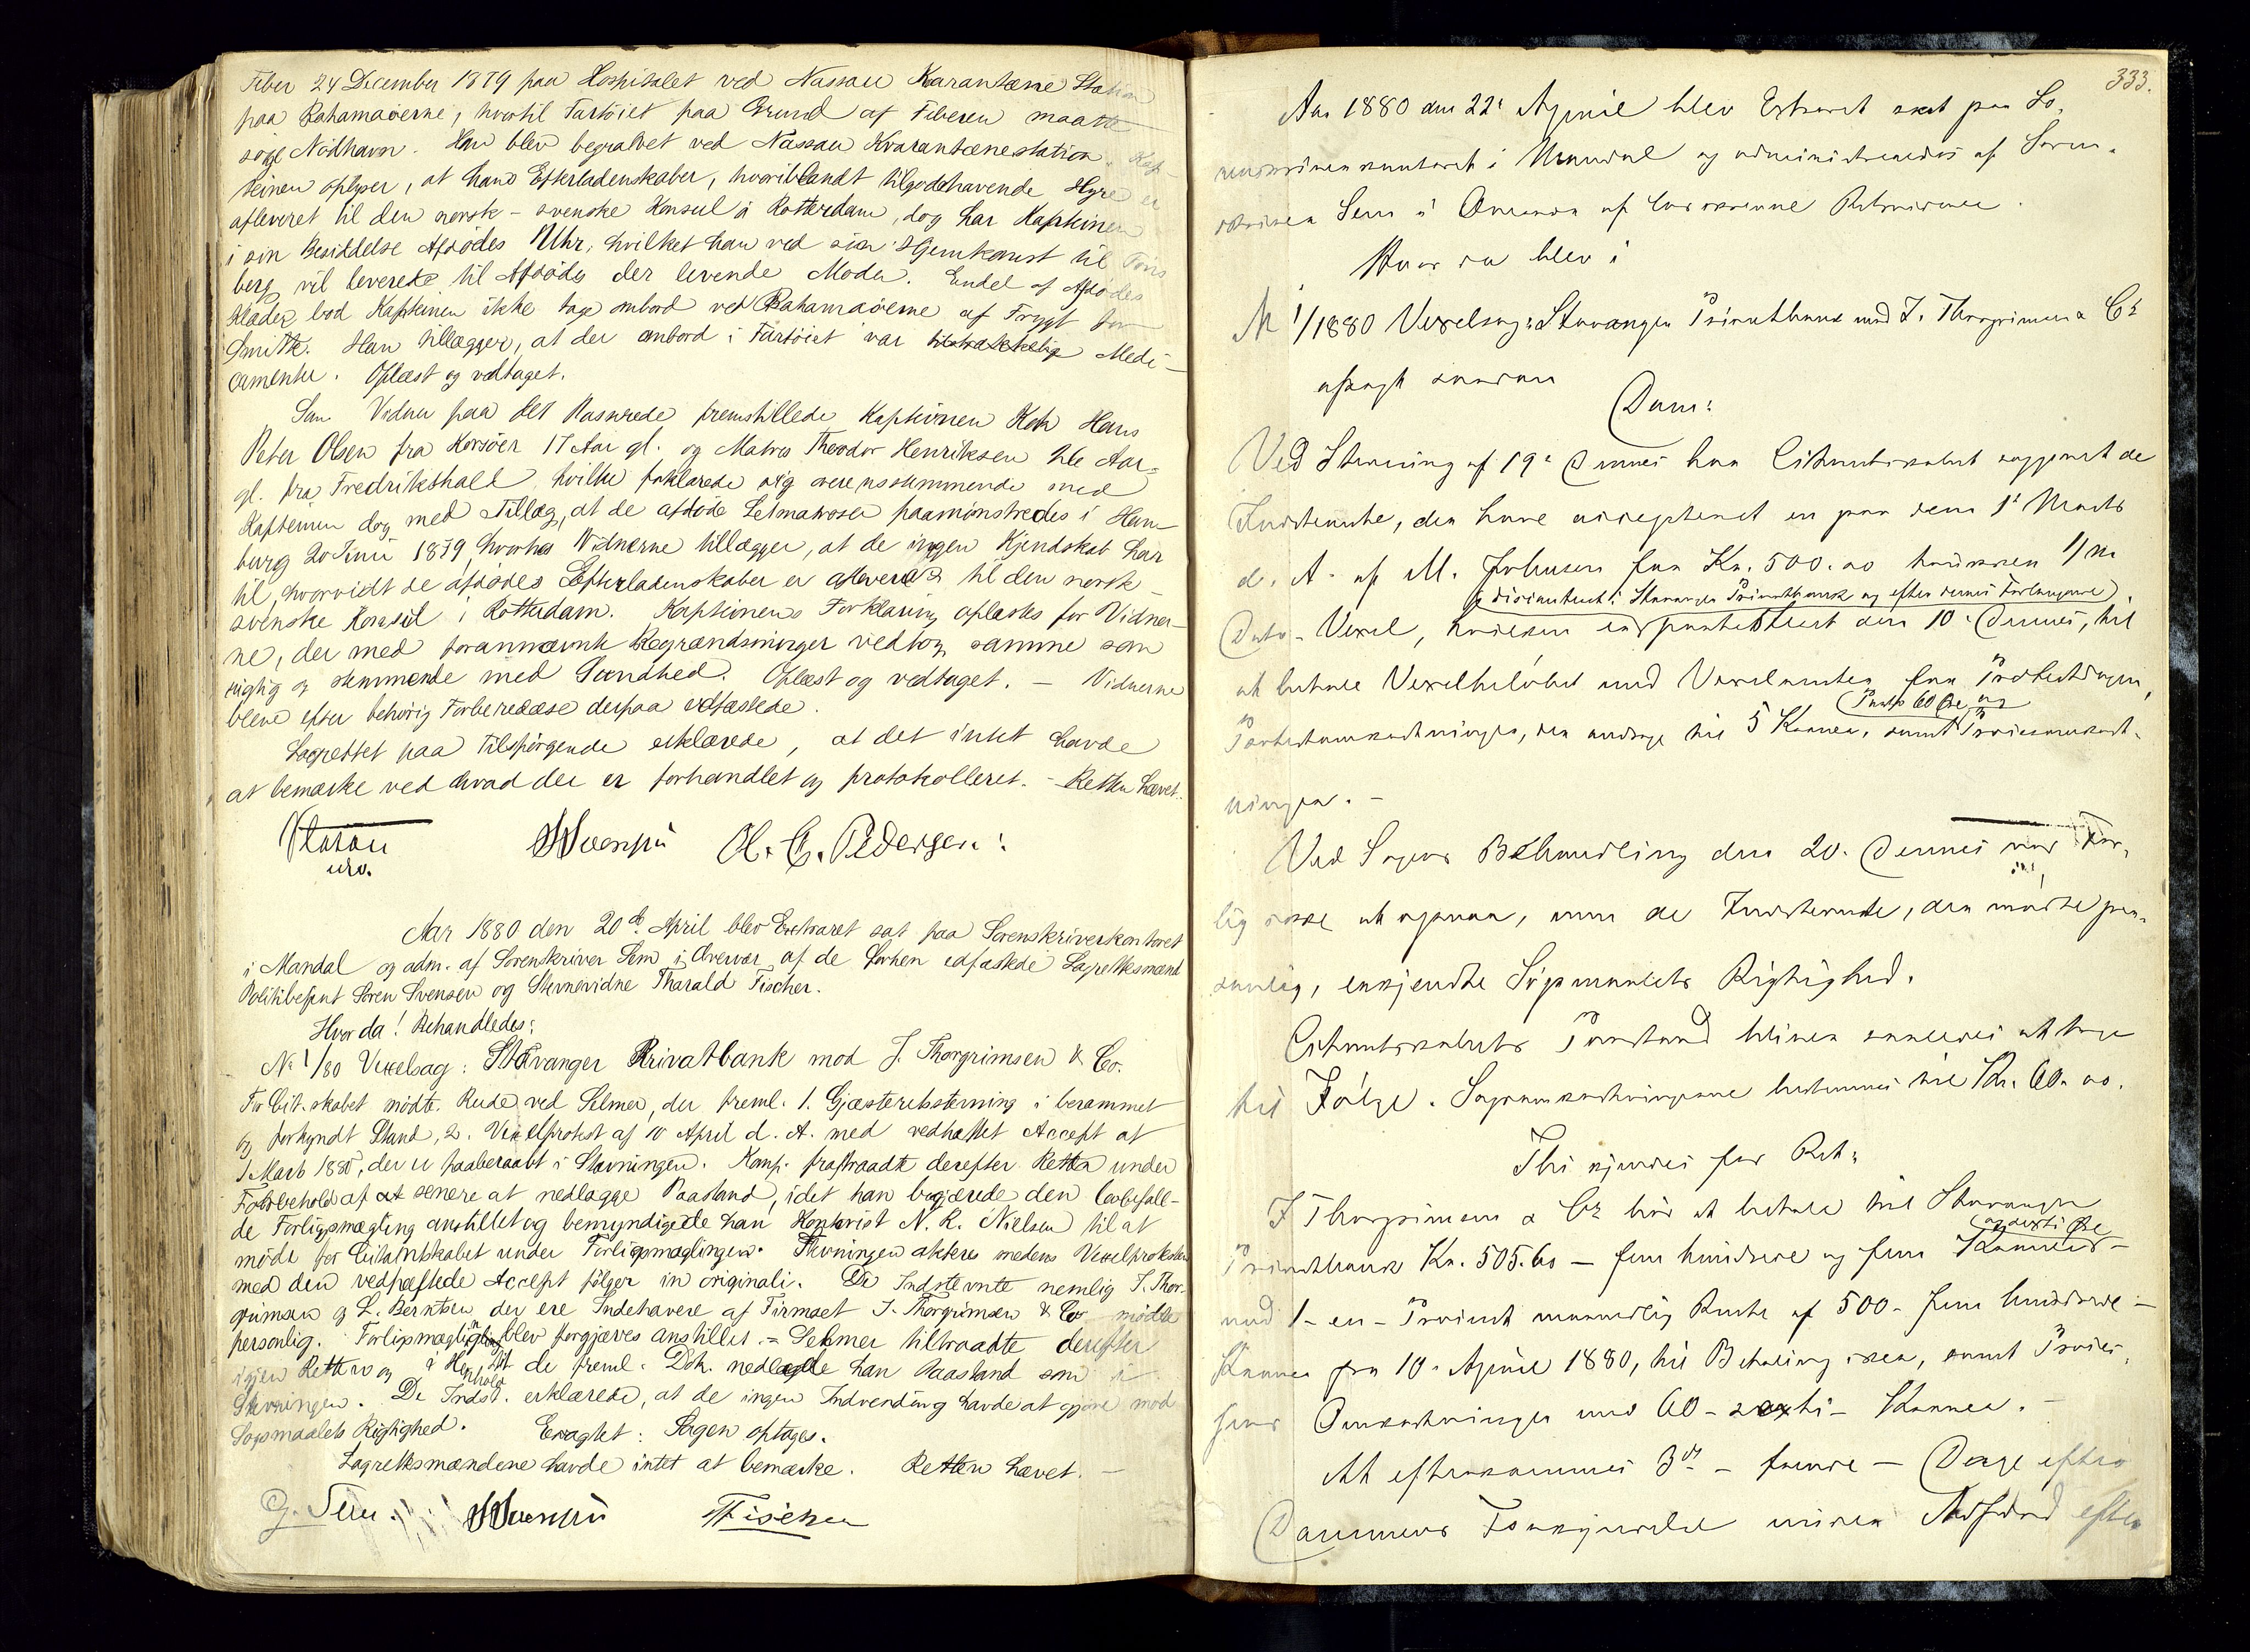 Feber 24 December 1879 paa Hospitalet ved Nassau Karantæne Station
paa Bahamaöerne, hvortil Fartöiet paa Grund af Feberen maatte
söge Nödhavn. Han blev begravet ved Nassau Kvarantænestation. Kap-
teinen oplyser, at hans Efterladenskaber, hvoriblandt tilgodehavende Hyre er
afleveret til den norsk-svenske Konsul i Rotterdam, dog har Kapteinen
i sin Besiddelse Afdödes Uhr, hvilket han ved sin Hjemkomst til Töns
berg vil levere til Afdödes der levende Moder. Endel af Afdödes
Klæder lod Kapteinen ikke tage ombord ved Bahamaöerne af Frygt for
Smitte. Han tillægger, at der ombord i Fartöiet var tilstrækkelig Medi-
camenter. Oplæst og vedtaget.
Som Vidner paa det Passerede fremstillede Kapteinen Kok Hans
Peter Olsen fra Korsöer 17 Aar gl. og Matros Theodor Henriksen Aar
gl. fra Fredrikshald hvilke forklarede sig overensstemmende med
Kapteinen dog med Tillæg, at de afdöde Letmatroser paamönstredes i Ham-
burg 20 Juni 1879, hvorhos Vidnerne tillægger, at de ingen Kjendskab har
til, hvorvidt de afdödes Efterladenskaber er afleveret til den norsk-
svenske Konsul i Rotterdam. Kapteinens Forklaring oplæstes for Vidner-
ne, der med forannævnte Begrændsninger vedtog samme som
rigtig og stemmende med Sandhed. Oplæst og vedtaget. – Vidnerne
bleve efter behörig Forberedelse derpaa edfæstede.
Lagrettet paa Tilspörgende erklærede, at det intet havde
at bemærke ved hvad der er forhandlet og protokolleret. – Retten hævet.
SSvensen O. C. Pedersen
Aar 1880 den 20de April blev Extraret sat paa Sorenskriverkontoret
i Mandal og adm. af Sorenskriver Sem i Overvær af de forhen edfæstede Lagrettesmænd
Politibetjent Sören Svensen og Stevnevidne Tharald Fischer.
Hvor da! Behandledes:
No 1/80 Vexelsag: Stavanger Privatbank mod J. Thorgrimsen & Co.
For Cit.skabet mödte Rude ved Selmer, der freml. 1. Gjæsteretsstevning i berammet
og forkyndt Stand, 2. Vexelprotest af 10 April d. A. med vedhæftet Accept af
1 Marts 1880, der er paaberaabt i Stevningen. Komp. fratraadte derefter Retten under
Forbehold af at senere at nedlægge Paastand, idet han begjærede den lovbefall-
de Forligsmægling anstillet og bemyndigede han Kontorist N. R. Nielsen til at
möde for Citantskabet under Forligsmæglingen. Stevningen akteres medens Vexelprotesten
med den vedhæftede Accept fölger in originali. De Indstevnte nemlig J. Thor-
grimsen og L. Berntsen der ere Indehavere af Firmaet J. Thorgrimsen & Co mödte
personlig. Forligsmægling blev forgjæves anstillet. – Selmer tiltraadte derefter
igjen Retten og i Henhold til de freml. Dok. nedlagde han Paastand som i
Stevningen. De Indst. erklærede, at de ingen Indvending havde at gjöre mod
Sogsmaalets Rigtighed. Eragtet: Sagen optages.
Lagrettesmændene havde intet at bemærke. Retten hævet. –
G. Sem. SSvensen TFischer
333.
Aar 1880 den 22de April blev Extraret sat paa So-
renskriverkontoret i Mandal og administreredes af Soren-
skriver Sem i Overvær af Retsvidner.
Hvor da blev i
No 1/1880 Vexelsag: Stavanger Privatbank mod J. Thorgrimsen & Co
afsagt saadan
Dom:
Ved Stevning af 19de Dennes har Citantskabet sagsögt de
Indstevnte, der have accepteret en paa dem 1ste Marts
d. A. af M. Johnsen for Kr. 500.00 trukken 1/m
og discontert i Stavanger Privatbank og efter dennes Forlangende
Dato-Vexel, hvilken er protesteret den 10de Dennes, til
at betale Vexelbelöbet med Vexelrenter fra Protestdagen,
Porto 60 Öre og
Protestomkostninger, der andrage til 5 Kroner, samt Procesomkost-
ninger. –
Ved Sagens Behandling den 20. Dennes var For-
lig ikke at opnaa, men de Indstevnte, der mödte per-
sonlig, erkjendte Sögsmaalets Rigtighed.
Citantskabets Paastand bliver saaledes at tage
til Fölge. Sagsomkostningerne bestemmes til Kr. 60.00.
Thi kjendes for Ret:
J Thorgrimsen & Co bör at betale til Stavanger
og sexti Öre
Privatbank Kr. 505.60 – fem hundrede og fem Kroner –
med 1 – en – Procent maanedlig Rente af 500 – fem hundrede –
Kroner fra 10de April 1880, til Betaling sker, samt Proces-
sens Omkostninger med 60 – sexti – Kroner. –
At efterkommes 3de – trende – Dage efter
Dommens Forkyndelse under Adfærd efter